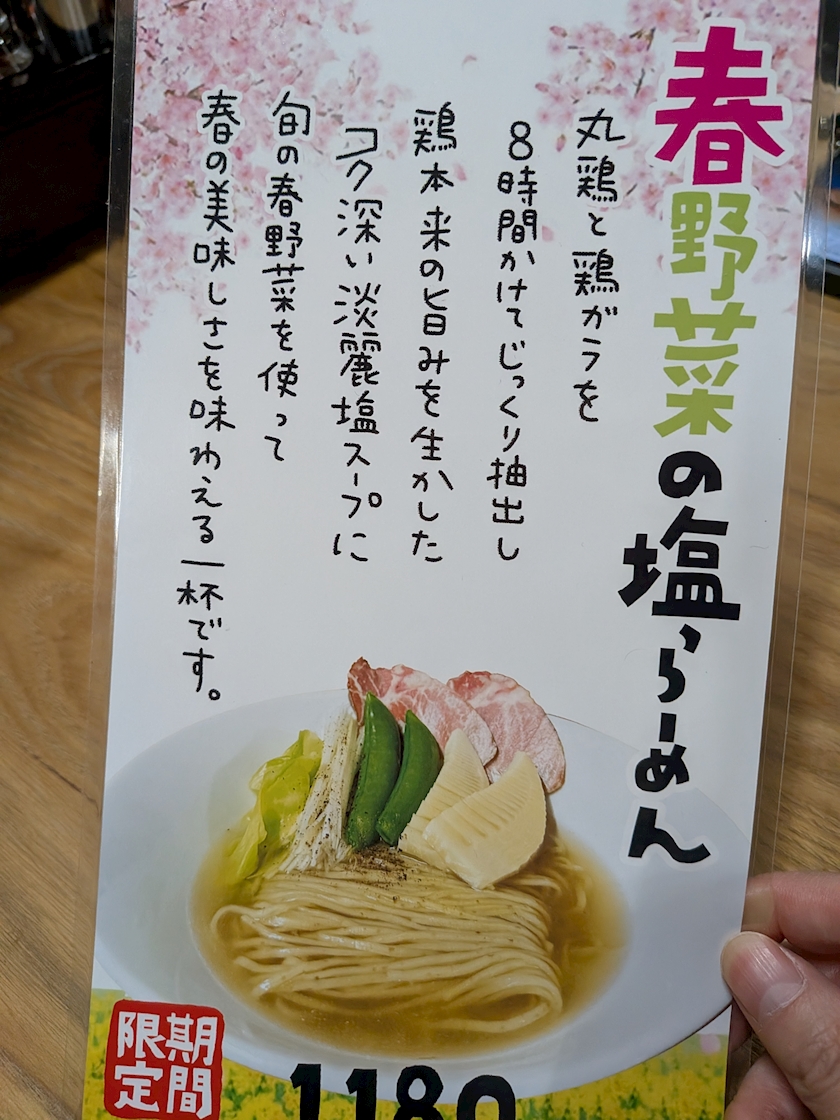 春野菜の塩らーめん
丸鶏と鶏ガラを
8時間かけてじっくり抽出し
鶏本来の旨みを生かした
コク深い淡麗塩スープに
旬の春野菜を使って
春の美味しさを味わえる一杯です。
期間
限定
1180